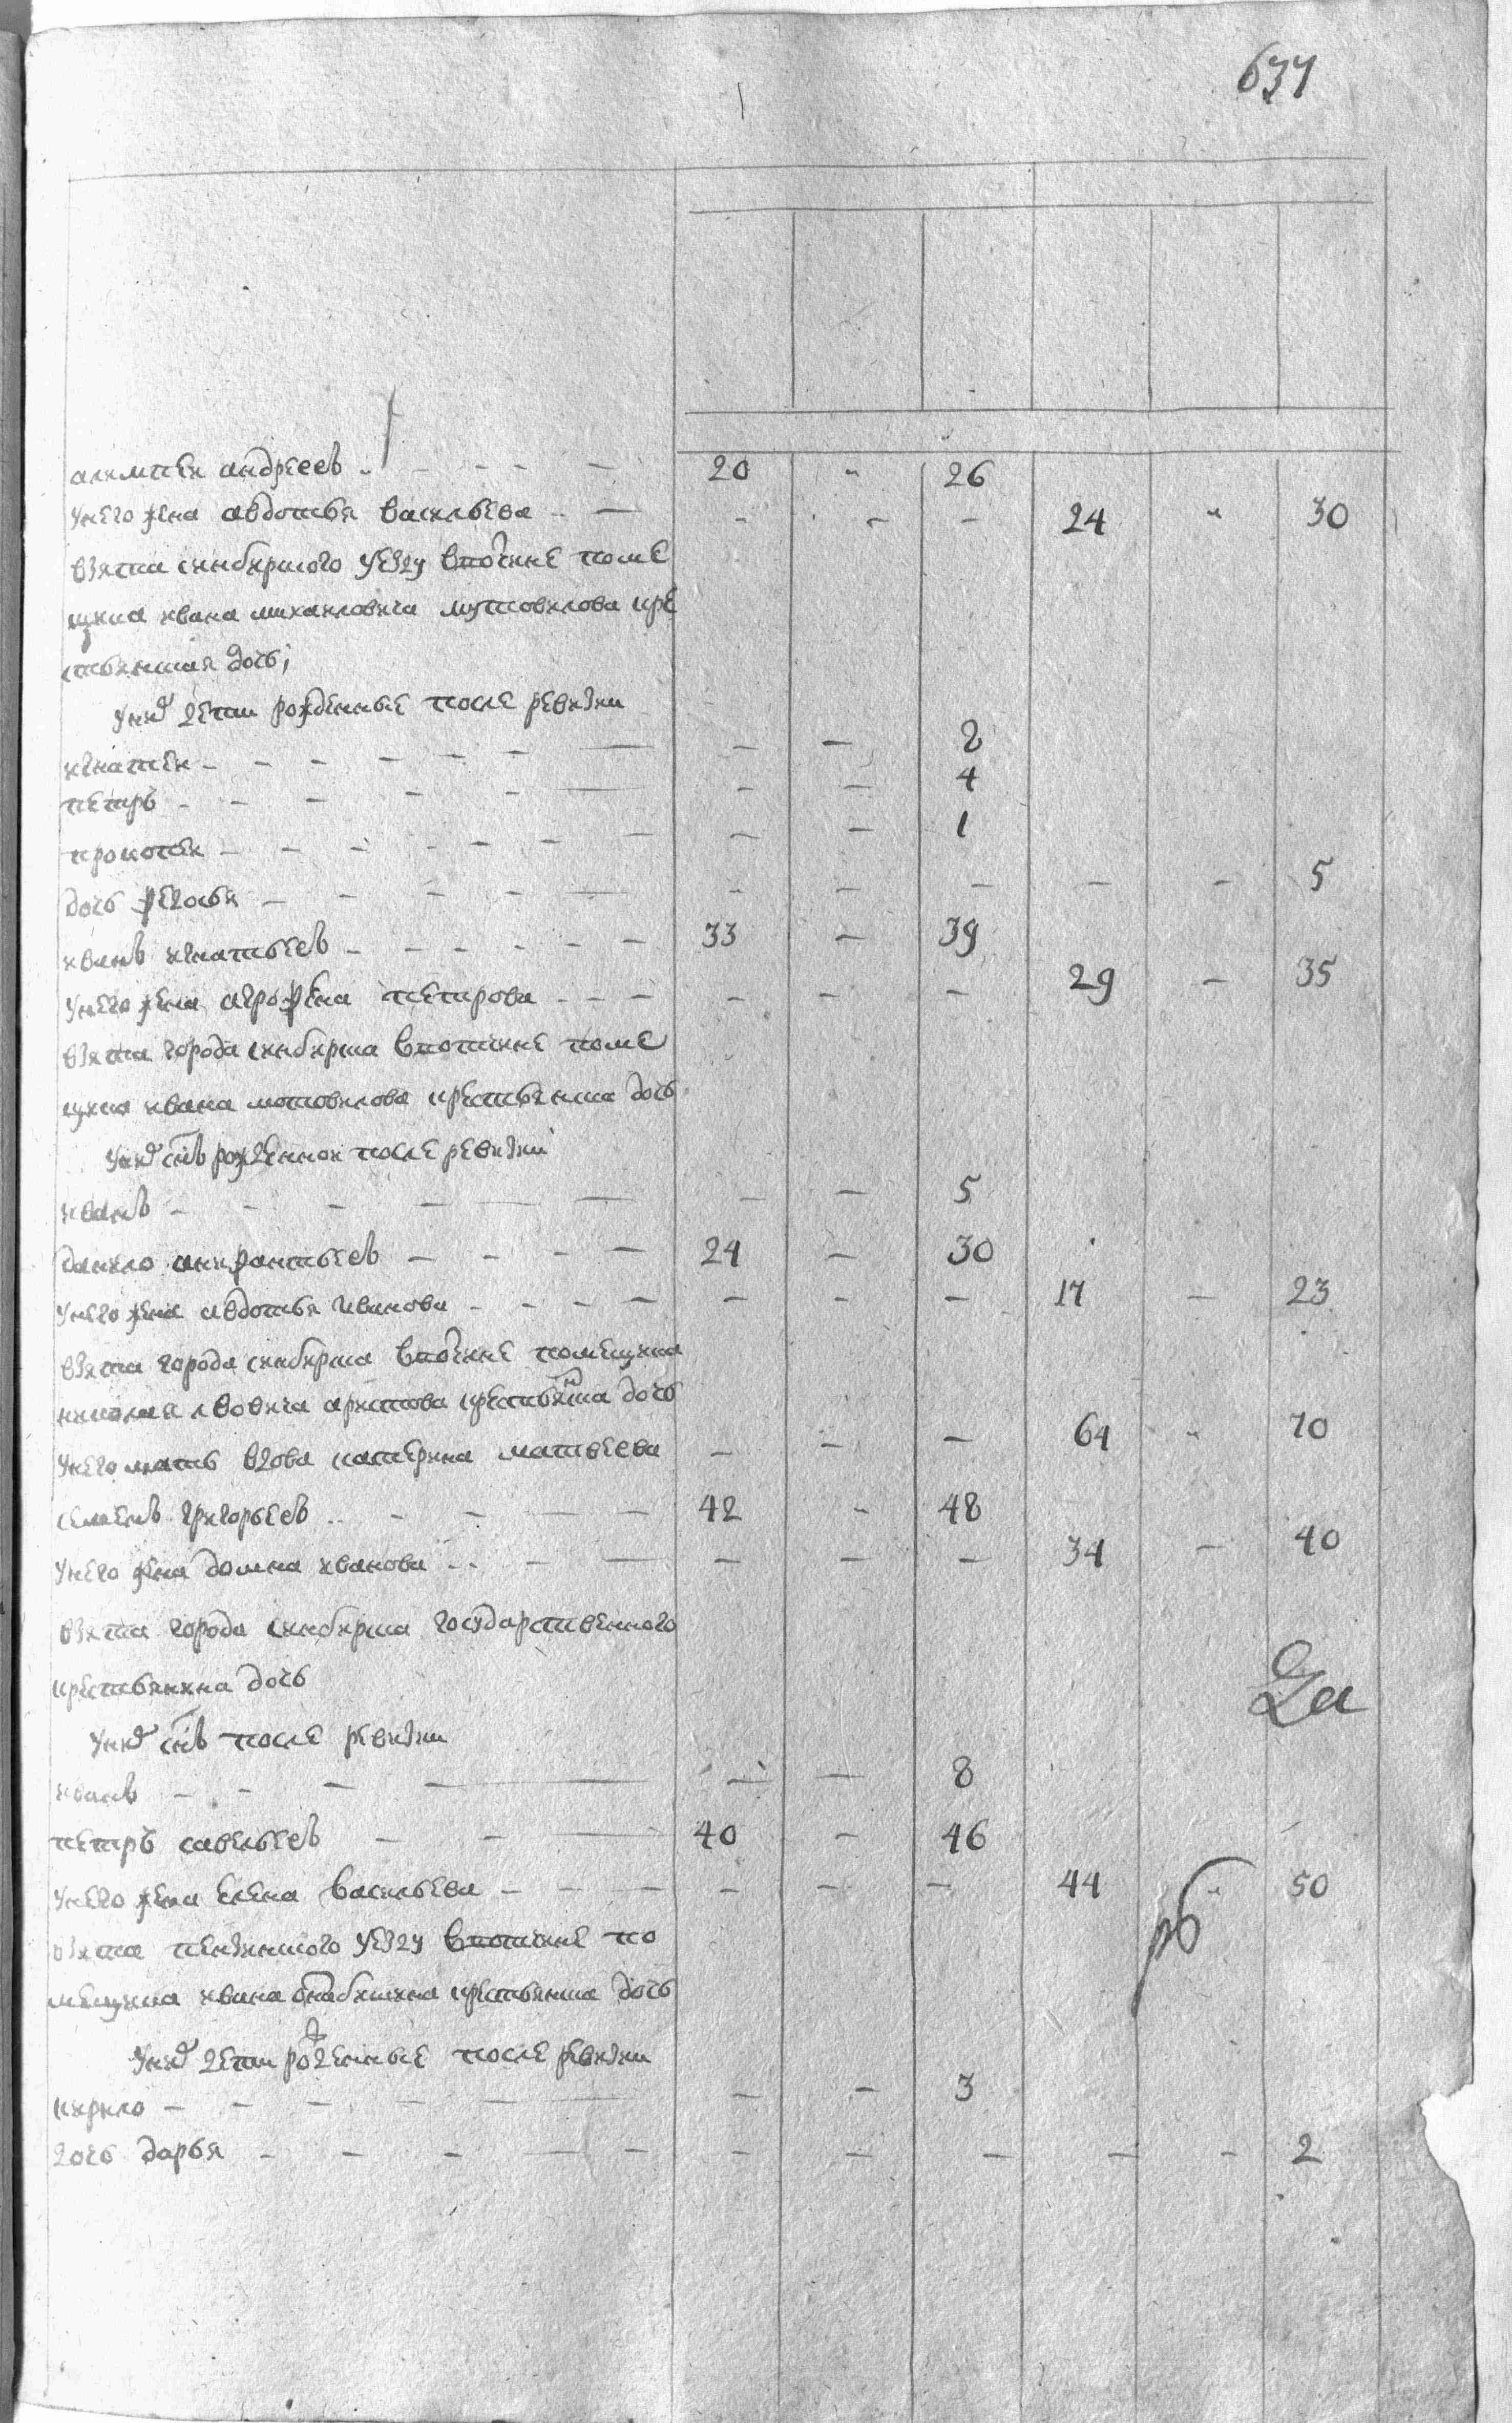 637
алимпей андреев 20 „ 26
у него жена авдотья васильева - - - 24 „ 30
взята синбирского уезду вотчине поме
щика ивана михаиловича мотовилова кре
стьянская дочь;
у них дети рожденные после ревизии
игнатей - - 8
петръ - - 4
прокофей - - 1
дочь федосья - - - - - 5
иванъ игнатьев 33 - 39
у него жена аграфена петрова - - - 29 - 35
взята города синбирска вотчине поме
щика ивана мотовилова крестьянска дочь
у них снъ рожденной после ревизии
иванъ - - 5
данило анкрантьев 24 - 30
у него жена авдотья иванова - - - 17 - 23
взята города синбирска вотчине помещика
николая львовича аристова крестьянска дочь
у него мать вдова катерина матвеева - - - 64 „ 70
семенъ григорьев 42 - 48
у него жена домна иванова - - - 34 - 40
взята города синбирска государственного
крестьянина дочь
у них снъ после ревизии
иванъ - - 8
петръ савельев 40 - 46
у него жена елена васильева - - - 44 „ 50
взята пензинского уезду вотчине по
мещика ивана крестьянска дочь
у них дети рожденные после ревизии
кирило - - 3
дочь дарья - - - - - 2